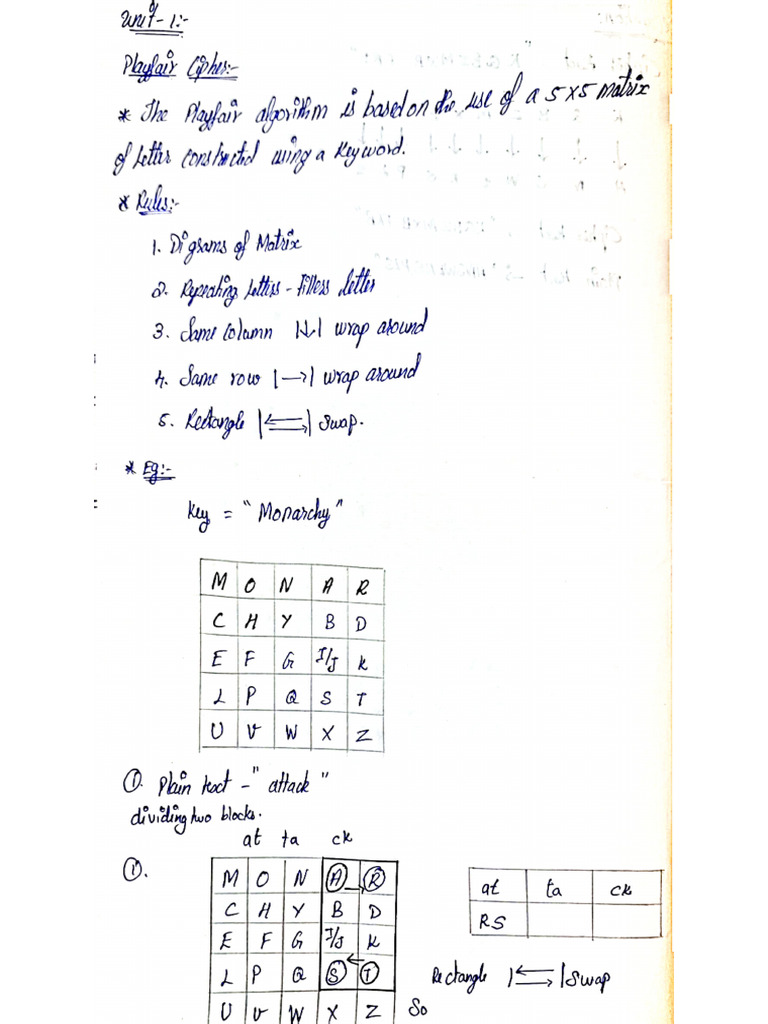 Unit-1:-
Playfair Cipher:-
* The Playfair algorithm is based on the use of a 5x5 matrix
of Letter constructed using a keyword.
* Rules:-
1. Digrams of Matrix
2. Repeating Letters - Fillers Letter
3. Same Column |↓| wrap around
4. Same row |→| wrap around
5. Rectangle |⇆| Swap.
* Eg:-
Key = "Monarchy"
M O N A R
C H Y B D
E F G I/J K
L P Q S T
U V W X Z
①. Plain text - "attack"
dividing two blocks.
at ta ck
①.
M O N A → R
C H Y B D
E F G I/J K
L P Q S ← T
U V W X Z
at ta ck
RS
Rectangle |⇆| Swap
So